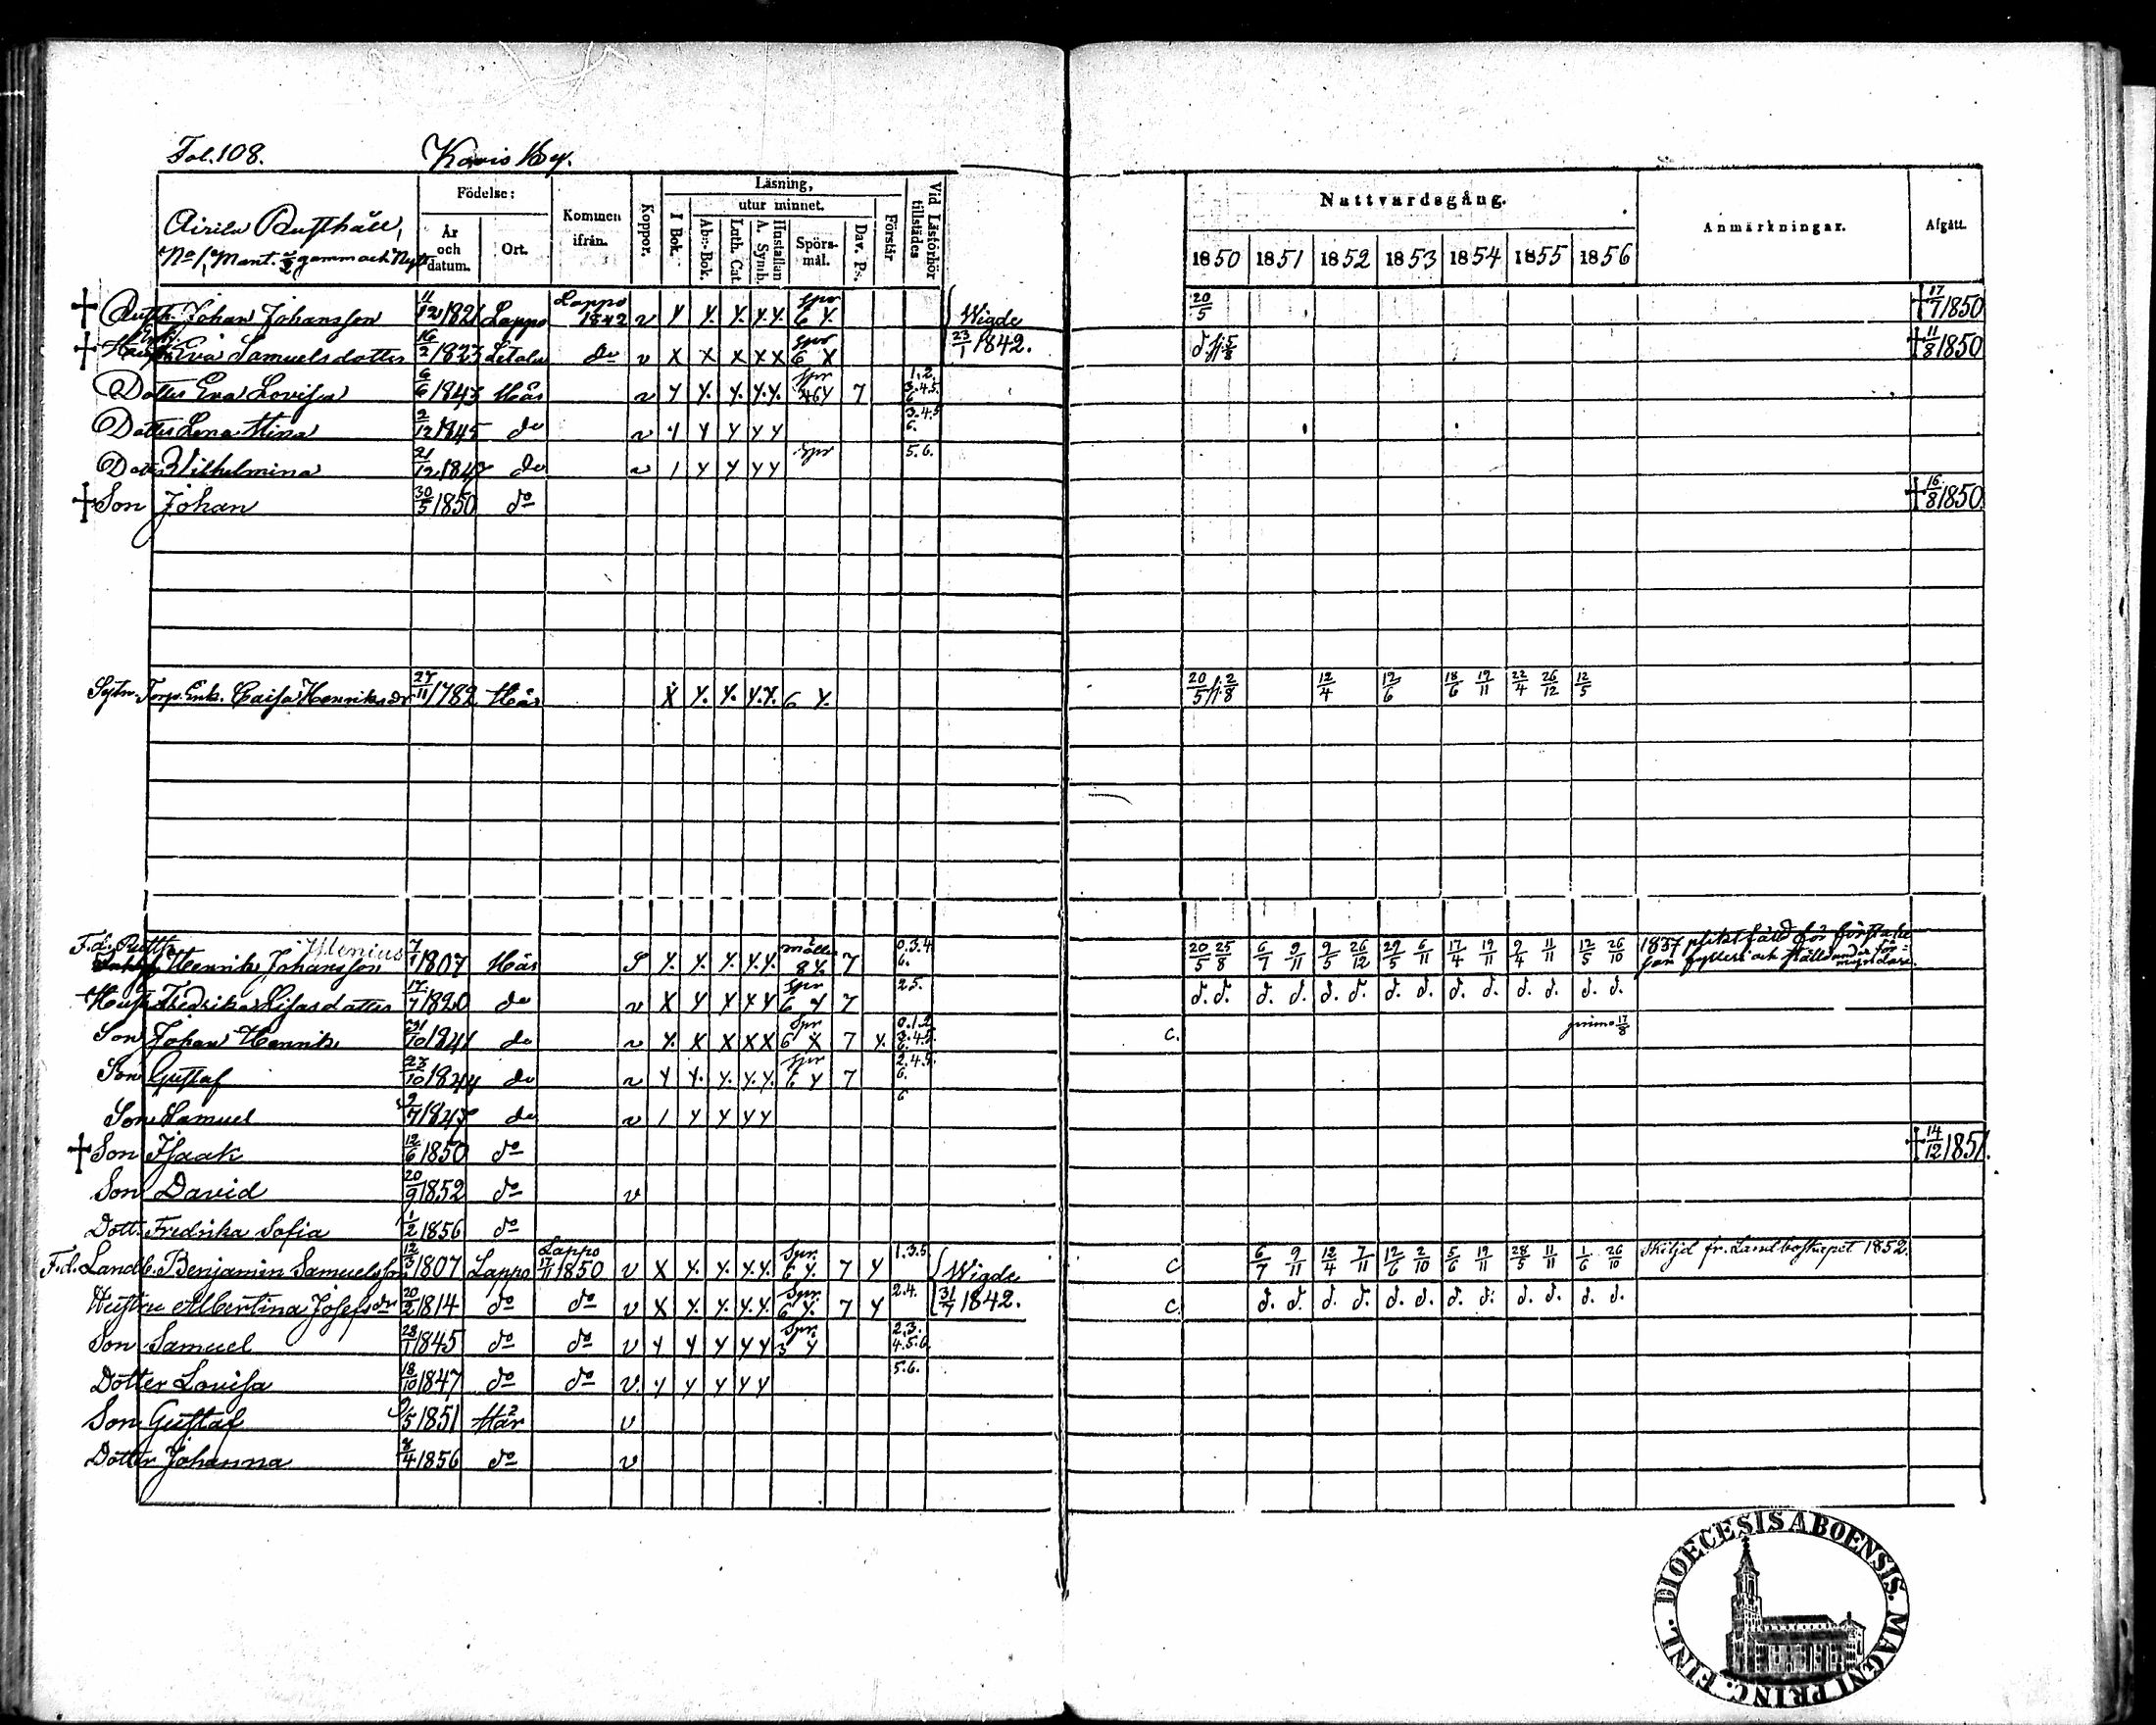 Fol. 108. Kavis By.
Airila Rusthåll,
No 1, Mant.
Födelse:
År och datum.
Ort.
Kommen ifrån.
Koppor.
Läsning,
I Bok.
utur minnet.
Abc-Bok.
Luth. Cat.
Hustaflan A. Symb.
Spörsmål.
Dav. Ps.
Förstår
Vid Läsförhör tillstädes
Nattvardsgång.
1850 1851 1852 1853 1854 1855 1856
Anmärkningar.
Afgått.
† Rusth. Johan Johansson 11/12 1821 Lappo Lappo 1842 v Y Y. Y. Y.Y. Spr 6 Y. Wigde 20/5 † 17/7 1850
† Enk. Eva Samuelsdotter 16/2 1823 Letala do v X X X X X Spr 6 X 23/1 1842. † 11/8 1850
Dotter Eva Lovisa 6/6 1843 Här v Y Y. Y. Y.Y. Spr 7 1.2. 3.4.5. 6
Dotter Lena Stina 2/12 1845 do v Y Y Y Y Y 3.4.5 6.
Dotter Wilhelmina 21/12 1847 do v 1 Y Y Y Y Spr 5.6.
† Son Johan 30/5 1850 do † 16/8 1850.
Sytn. Torp. Enk. Caisa Henriksdr 27/11 1782 Här X Y. Y. Y.Y. 6 Y. 20/5 2/8 12/4 12/6 18/6 19/11 22/4 26/12 12/5
F.d. Rusth. Henrik Johansson 7/1 1807 Här S Y. Y. Y. Y.Y. 8 Y. 7 0.3.4 6. 20/5 25/8 6/7 9/11 9/5 26/12 29/5 6/11 17/4 19/11 9/4 11/11 12/5 26/10 1837 plikt fälld för
fylleri och ställd under förmyndare.
Hustr. Fredrika Lisasdotter 17/7 1820 do v X Y Y Y Y Spr 6 Y 7 2 5. d. d. d. d. d. d. d. d. d. d. d. d. d. d.
Son Johan Henrik 21/10 1841 do v Y. X X X X Spr 6 X 7 Y. 0.1.2 3.4.5. 6. C. primo 17/8
Son Gustaf 23/10 1844 do v Y Y. Y. Y.Y. Spr 6 Y 7 2.4.5. 6.
Son Samuel 9/7 1847 do v 1 Y Y Y Y 6
† Son Isaak 12/6 1850 do † 14/12 1851.
Son David 20/9 1852 do v
Dott. Fredrika Sofia 1/2 1856 do
F.d. Landb. Benjamin Samuelsson 12/3 1807 Lappo Lappo 17/11 1850 v X Y. Y. Y.Y. Spr. 6 Y. 7 Y 1.3.5 Wigde C 6/7 9/11 12/4 7/11 12/6 2/10 5/6 19/11 28/5 11/11 1/6 26/10 Skiljd fr. Landboskapet 1852.
Hustru Albertina Josefsdr 20/2 1814 do do v X Y. Y. Y.Y. Spr. 6 Y. 7 Y 2.4. 31/7 1842. C. d. d. d. d. d. d. d. d. d. d. d. d.
Son Samuel 28/1 1845 do do v Y Y Y Y Y Spr. 3 Y 2.3. 4.5.6.
Dotter Lovisa 18/10 1847 do do v. Y Y Y Y Y 5.6.
Son Gustaf 9/5 1851 Här v
Dotter Johanna 8/4 1856 do v
DIOECESIS ABOENSIS. MAGNI PRINC. FINL.